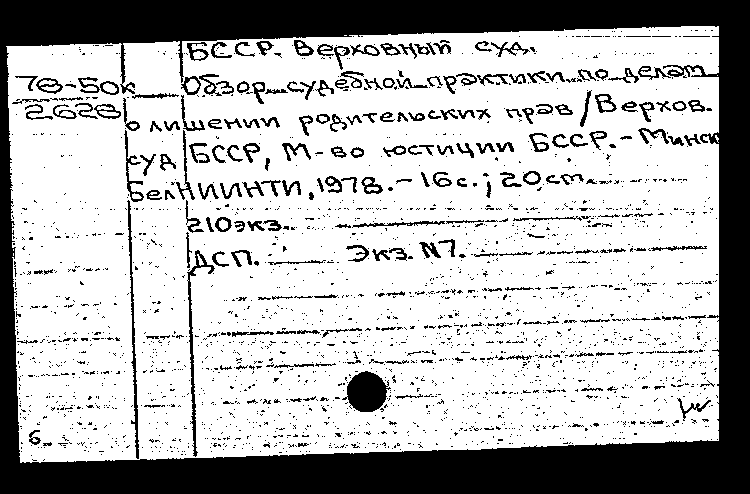 БССР. Верховный суд.
78-50к Обзор судебной практики по делам
2628
о лишении родительских прав / Верхов.
суд БССР, М-во юстиции БССР. - Минск
БелНИИНТИ, 1978. - 16 с.; 20 см.
210 экз.
ДСП. Экз. N7.
6